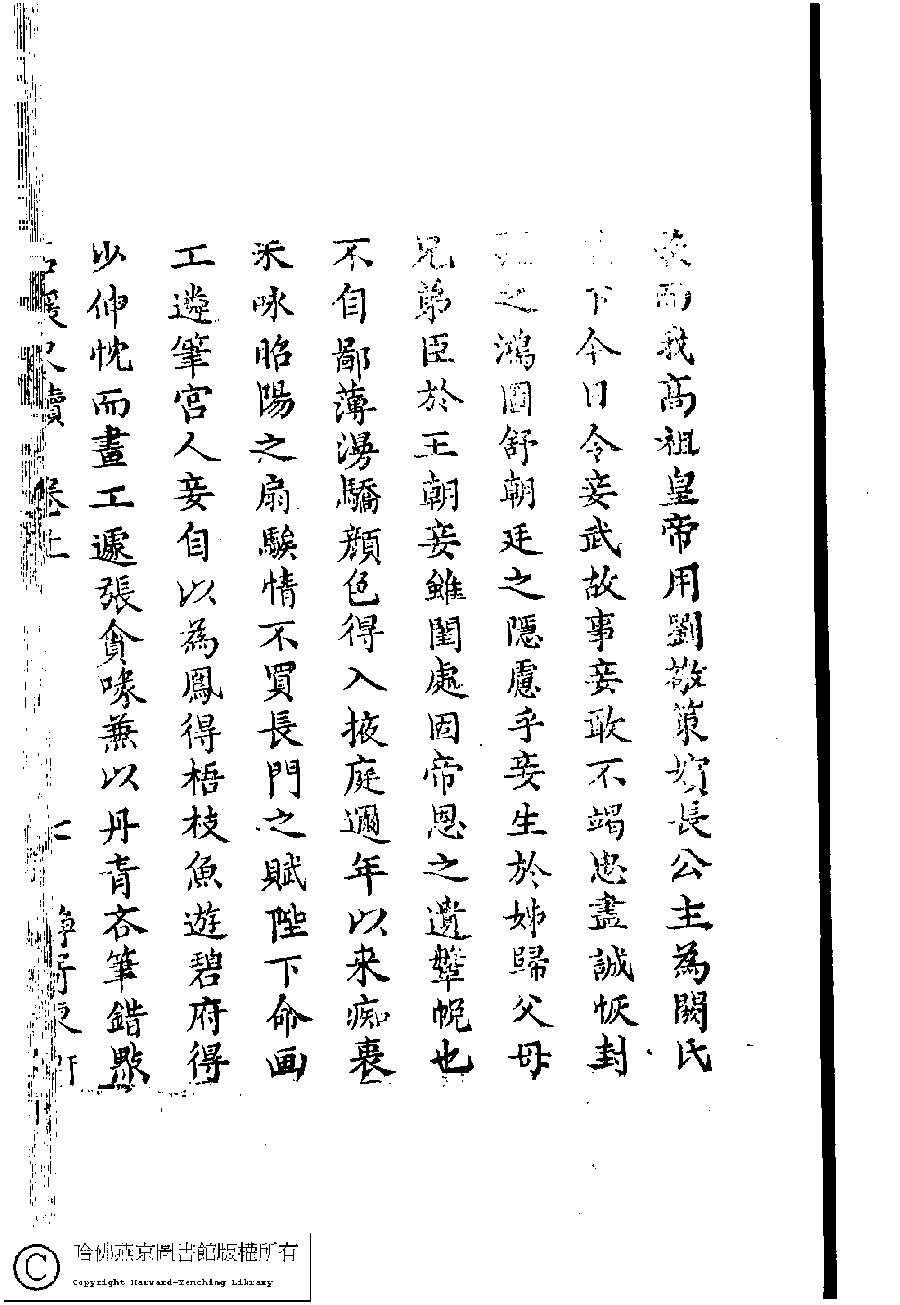 而我高祖皇帝用劉敬策嬪長公主為閼氏
下今日令妾武故事妾敢不竭忠盡誠恢封
之鴻圖舒朝廷之隱慮乎妾生於姊歸父母
兄弟臣於王朝妾雖閨處固帝恩之遺犛帨也
不自鄙薄謾驕顔色得入掖庭邇年以来痴衷
未咏昭陽之扇騃情不買長門之賦陛下命画
工遴筆宫人妾自以為鳳得梧枝魚遊碧府得
少伸忱而畫工遽張貪喙兼以丹青吝筆錯點
媛尺牘 卷上
哈佛燕京圖書館版權所有
Copyright Harvard-Yenching Library